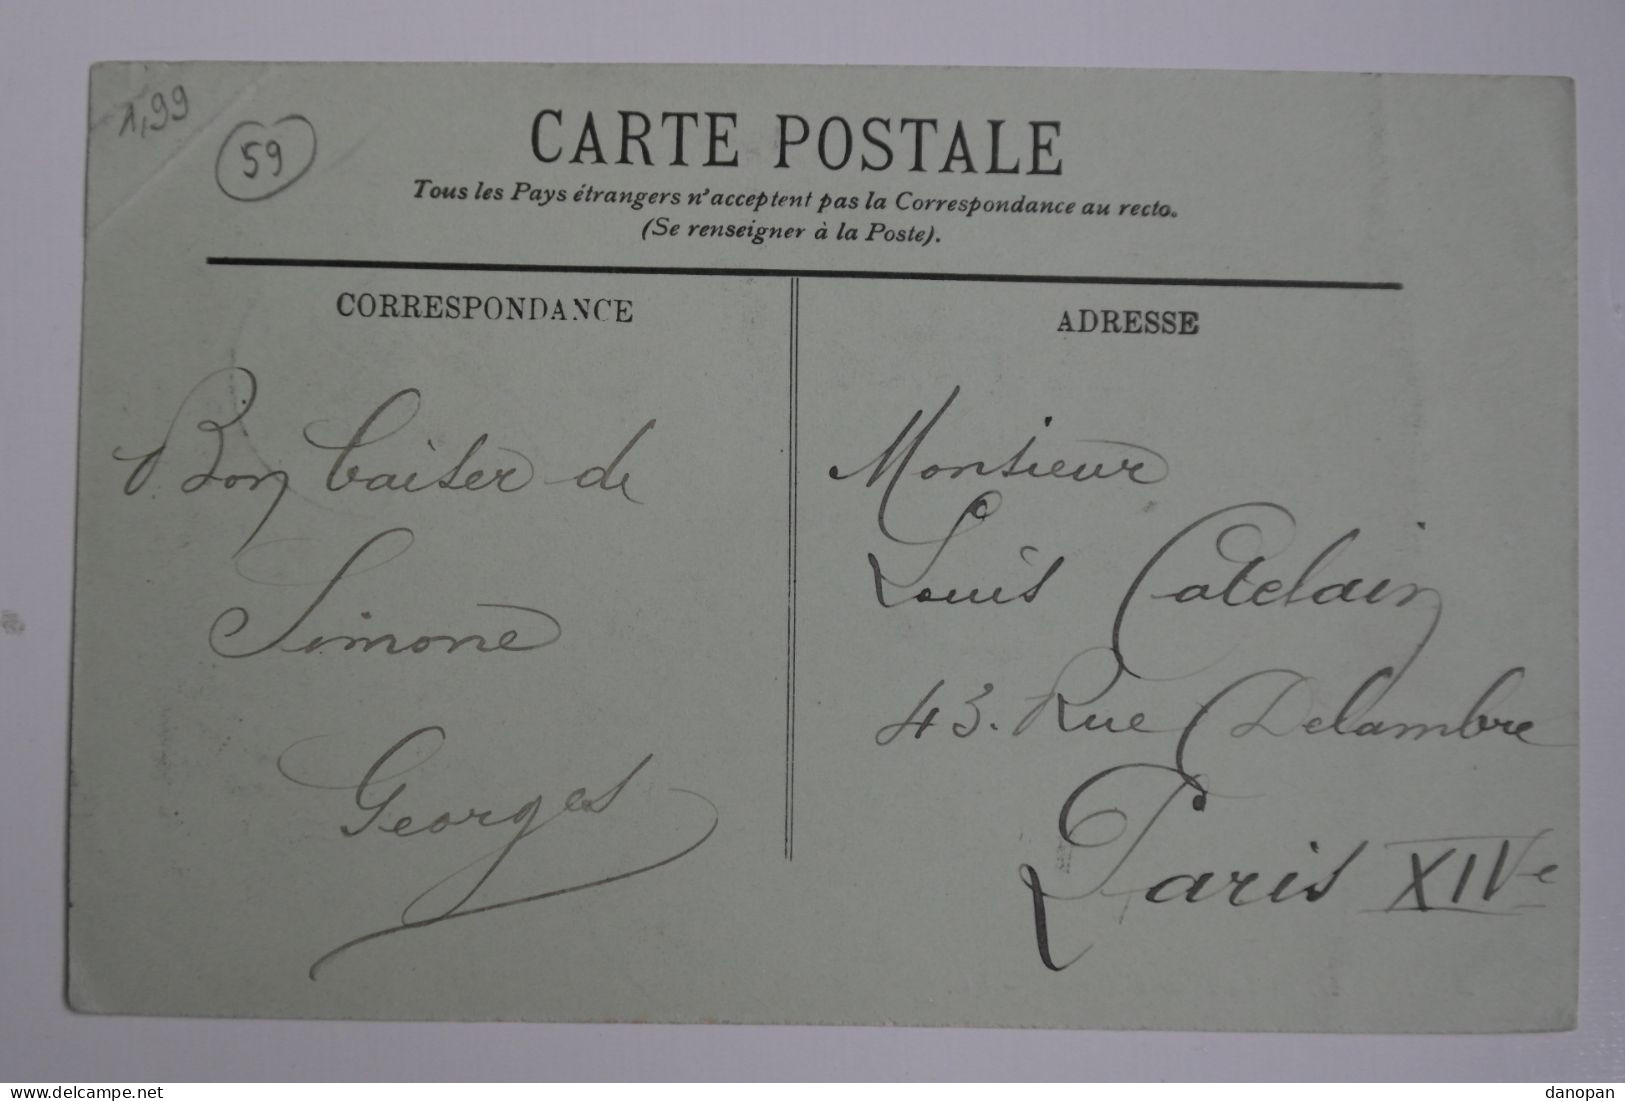 1,99
59
CARTE POSTALE
Tous les Pays étrangers n'acceptent pas la Correspondance au recto.
(Se renseigner à la Poste).
CORRESPONDANCE
Bon baiser de
Simone
Georges
ADRESSE
Monsieur
Louis Catelain
43. Rue Delambre
Paris XIVe
www.delcampe.net
danopan